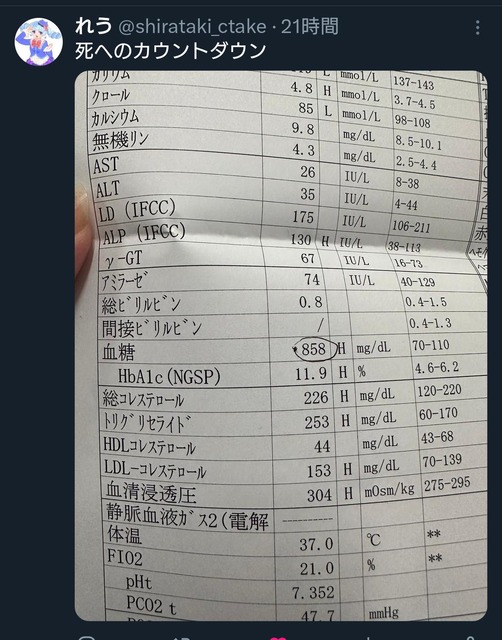 れう @shirataki_ctake · 21時間
死へのカウントダウン
L mmol/L 137-143
カリウム 4.8 H mmol/L 3.7-4.5
クロール 85 L mmol/L 98-108
カルシウム 9.8 mg/dL 8.5-10.1
無機リン 4.3 mg/dL 2.5-4.4
AST 26 IU/L 8-38
ALT 35 IU/L 4-44
LD (IFCC) 175 IU/L 106-211
ALP (IFCC) 130 H IU/L 38-113
γ-GT 67 IU/L 16-73
アミラーゼ 74 IU/L 40-129
総ビリルビン 0.8 0.4-1.5
間接ビリルビン / 0.4-1.3
血糖 858 H mg/dL 70-110
HbA1c(NGSP) 11.9 H % 4.6-6.2
総コレステロール 226 H mg/dL 120-220
トリグリセライド 253 H mg/dL 60-170
HDLコレステロール 44 mg/dL 43-68
LDL-コレステロール 153 H mg/dL 70-139
血清浸透圧 304 H mOsm/kg 275-295
静脈血液ガス2(電解 ---------
体温 37.0 ℃ **
FIO2 21.0 % **
pHt 7.352
PCO2 t 47.7 mmHg